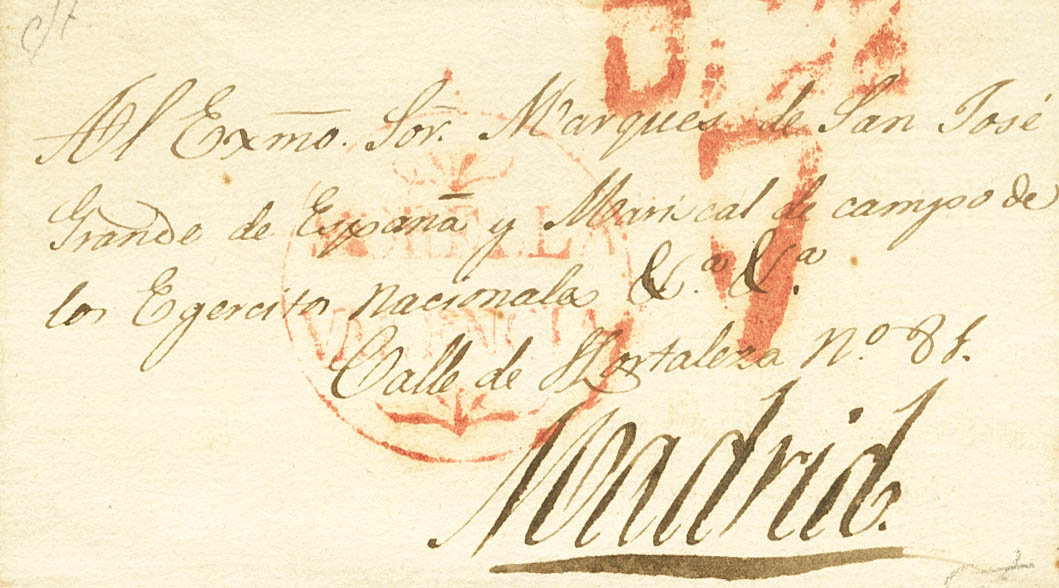 Al Exmo. Sor. Marques de San José
Grande de España y Mariscal de campo de
los Egercitos nacionales &.a &.a
Calle de Hortaleza No. 81.
Madrid.
7
VALENCIA